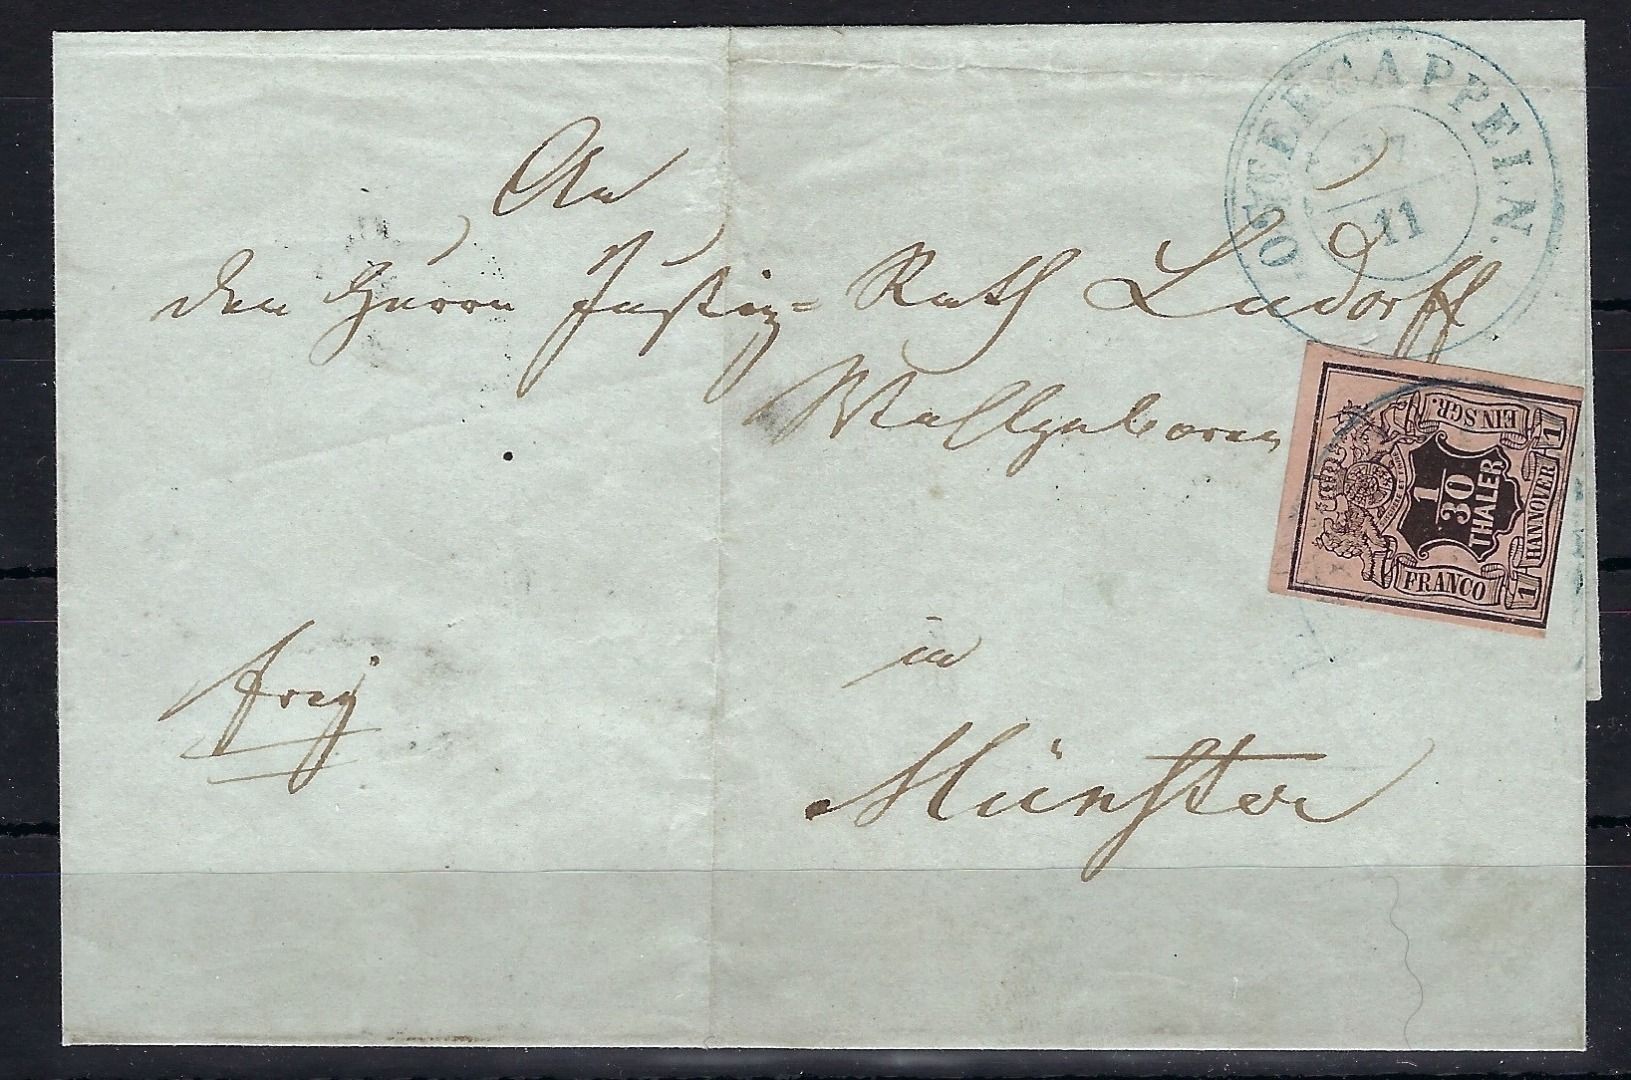 OSTERCAPPELN.
27
11
An
den Herrn Justiz-Rath Ludorff
Wohlgeboren
EIN SGR.
1
30
THALER
HANNOVER
1
1
FRANCO
in
frey
Münster